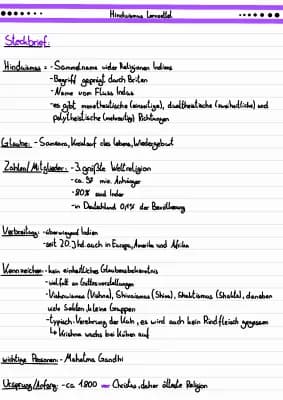 Hinduismus Lernzettel
Steckbrief:
Hinduismus: - Sammelname vieler Religionen Indiens
- Begriff geprägt durch Briten
- Name vom Fluss Indus
- es gibt monotheistische (eingottige), dualtheistische und
polytheistische (mehrgottige) Richtungen
Glaube: - Samsara, Kreislauf des Lebens, Wiedergeburt
Zahlen/Mitglieder: - 3. größte Weltreligion
- ca. mio. Anhänger
- 80% sind Inder
- in Deutschland 0,1% der Bevölkerung
Verbreitung: - überwiegend Indien
- seit 20. Jhd. auch in Europa, Amerika und Afrika
Kennzeichen: - kein einheitliches Glaubensbekenntnis
- vielfalt an Gottesvorstellungen
- Vishnuismus (Vishnu), Shivaismus (Shiva), Shaktismus (Shakti), daneben
viele kleine Gruppen
- typisch: Verehrung der Kuh, es wird auch kein Rindfleisch gegessen
↳ Krishna wuchs bei Kühen auf
wichtige Personen: - Mahatma Gandhi
Ursprung/Anfang: - ca. 1800 vor Christus, daher älteste Religion